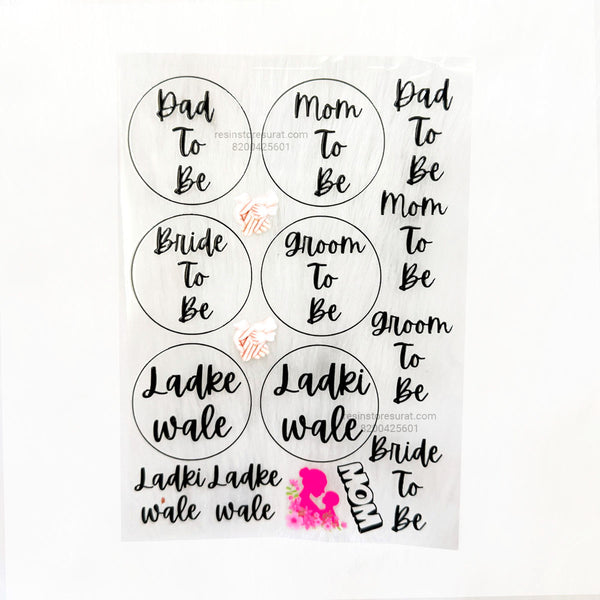 Dad
To
Be
Mom
To
Be
Dad
To
Be
resinstoresurat.com
8200425601
Mom
To
Be
Bride
To
Be
Groom
To
Be
Groom
To
Be
Ladke
wale
Ladki
wale
resinstoresurat.com
8200425601
Bride
To
Be
Ladki
wale
Ladke
wale
MOM